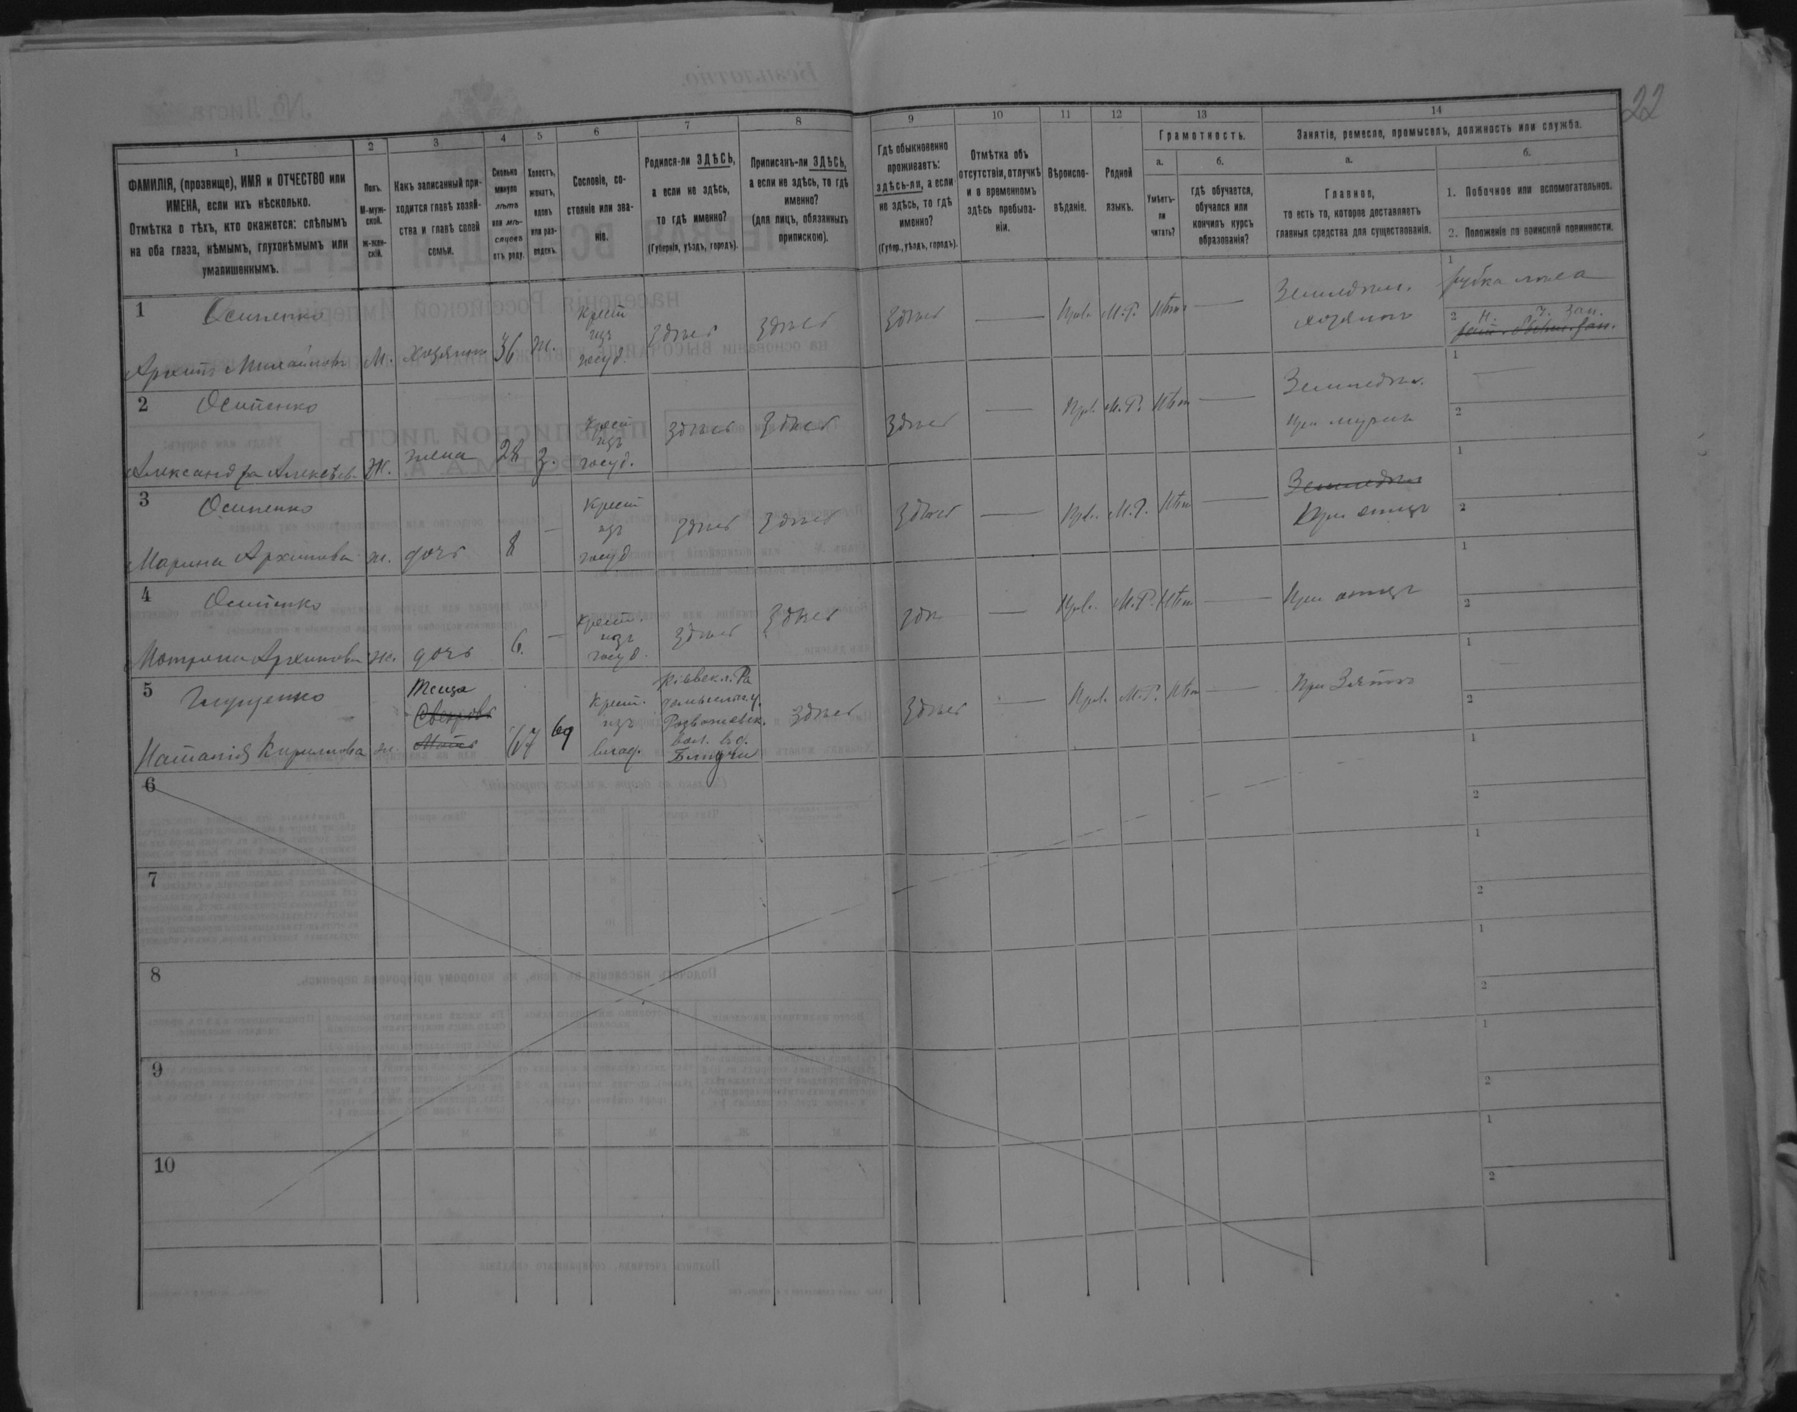 22
1
2
3
4
5
6
7
8
9
10
11
12
13
14
ФАМИЛІЯ, (прозвище), ИМЯ и ОТЧЕСТВО или
ИМЕНА, если ихъ нѣсколько.
Отмѣтка о тѣхъ, кто окажется: слѣпымъ
на оба глаза, нѣмымъ, глухонѣмымъ или
умалишеннымъ.
Полъ.
М-муж-
ской.
ж-жен-
скій.
Какъ записанный при-
ходится главѣ хозяй-
ства и главѣ своей
семьи.
Сколько
минуло
лѣтъ
или мѣ-
сяцевъ
отъ роду.
Холостъ,
женатъ,
вдовъ
или раз-
веденъ.
Сословіе, со-
стояніе или зва-
ніе.
Родился-ли ЗДѢСЬ,
а если не здѣсь,
то гдѣ именно?
(Губернія, уѣздъ, городъ).
Приписанъ-ли ЗДѢСЬ,
а если не здѣсь, то гдѣ
именно?
(для лицъ, обязанныхъ
припискою).
Гдѣ обыкновенно
проживаетъ:
здѣсь-ли, а если
не здѣсь, то гдѣ
именно?
(Губер., уѣздъ, городъ).
Отмѣтка объ
отсутствіи, отлучкѣ
и о временномъ
здѣсь пребыва-
ніи.
Вѣроиспо-
вѣданіе.
Родной
языкъ.
Грамотность.
а.
Умѣетъ-
ли
читать?
б.
гдѣ обучается,
обучался или
кончилъ курсъ
образованія?
Занятія, ремесло, промыселъ, должность или служба.
а.
Главное,
то есть то, которое доставляетъ
главныя средства для существованія.
б.
1. Побочное или вспомогательное.
2. Положеніе по воинской повинности.
1
Осипенко
Архипъ Михайловъ
М.
хозяинъ
36
ж.
Крест
изъ
госуд.
здѣсь
здѣсь
здѣсь
Прав.
М.Р.
Нѣтъ
Земледѣл.
хозяинъ
1
рубка лѣса
2
Н. Ч. Зап.
2
Осипенко
Александра Алексѣев.
ж.
жена
28
з.
Крест
изъ
госуд.
здѣсь
здѣсь
здѣсь
Прав.
М.Р.
Нѣтъ
Земледѣл.
При мужѣ
1
2
3
Осипенко
Марина Архипова
ж.
дочь
8
Крест
изъ
госуд
здѣсь
здѣсь
здѣсь
Прав.
М.Р.
Нѣтъ
Земледѣл
При отцѣ
1
2
4
Осипенко
Мотрона Архипова
ж.
дочь
6.
Крест.
изъ
госуд.
здѣсь
здѣсь
здѣ
Прав.
М.Р.
Нѣт
При отцѣ
1
2
5
Наталія Кирилова
ж.
Теща
Свекровь
Мать
67
вд
Крест.
изъ
влад.
здѣсь
здѣсь
Прав.
М.Р.
Нѣт
При Зятѣ
1
2
6
1
2
7
1
2
8
1
2
9
1
2
10
1
2